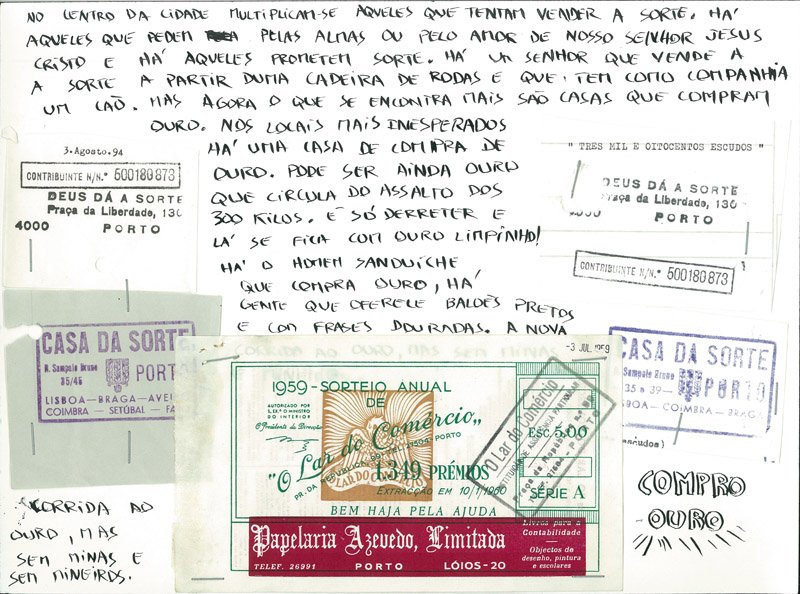 NO CENTRO DA CIDADE MULTIPLICAM-SE AQUELES QUE TENTAM VENDER A SORTE. HÁ
AQUELES QUE PEDEM PELAS ALMAS OU PELO AMOR DE NOSSO SENHOR JESUS
CRISTO E HÁ AQUELES PROMETEM SORTE. HÁ UM SENHOR QUE VENDE A
A SORTE A PARTIR DUMA CADEIRA DE RODAS E QUE TEM COMO COMPANHIA
UM CAÕ. MAS AGORA O QUE SE ENCONTRA MAIS SÃO CASAS QUE COMPRAM
OURO. NOS LOCAIS MAIS INESPERADOS
HÁ UMA CASA DE COMPRA DE
OURO. PODE SER AINDA OURO
QUE CIRCULA DO ASSALTO DOS
300 KILOS. É SÓ DERRETER E
LÁ SE FICA COM OURO LIMPINHO!
HÁ O HOMEM SANDUÍCHE
QUE COMPRA OURO, HÁ
GENTE QUE OFERECE BALDES PRETOS
E COM FRASES DOURADAS. A NOVA
CORRIDA AO
OURO, MAS
SEM MINAS E
SEM MINEIROS.
3.Agosto.94
CONTRIBUINTE N/N.º 500180873
DEUS DÁ A SORTE
Praça da Liberdade, 130
4000 PORTO
" TRES MIL E OITOCENTOS ESCUDOS "
DEUS DÁ A SORTE
Praça da Liberdade, 130
4000 PORTO
CONTRIBUINTE N/N.º 500180873
CASA DA SORTE
R. Sampaio Bruno
35/45 PORT
LISBOA—BRAGA—AVEI
COIMBRA — SETÚBAL — FA
CASA DA SORTE
Sampaio Bruno
35 a 39— PORTO
BOA — COIMBRA — BRAGA
escudos)
-3 JUL 1959
1959-SORTEIO ANUAL
DE
AUTORIZADO POR
S. EX.ª O MINISTRO
DO INTERIOR
O Presidente da Direcção
"O Lar do Comércio"
LAR DO COMÉRCIO
1.349 PRÉMIOS
EXTRACÇÃO EM 10/1/1960
BEM HAJA PELA AJUDA
ESC. 5,00
SÉRIE A
O Lar do Comércio
PORTO
Papelaria Azevedo, Limitada
TELEF. 26991 PORTO LÓIOS-20
Livros para a
Contabilidade
— Objectos de
desenho, pintura
e escolares
COMPRO
OURO